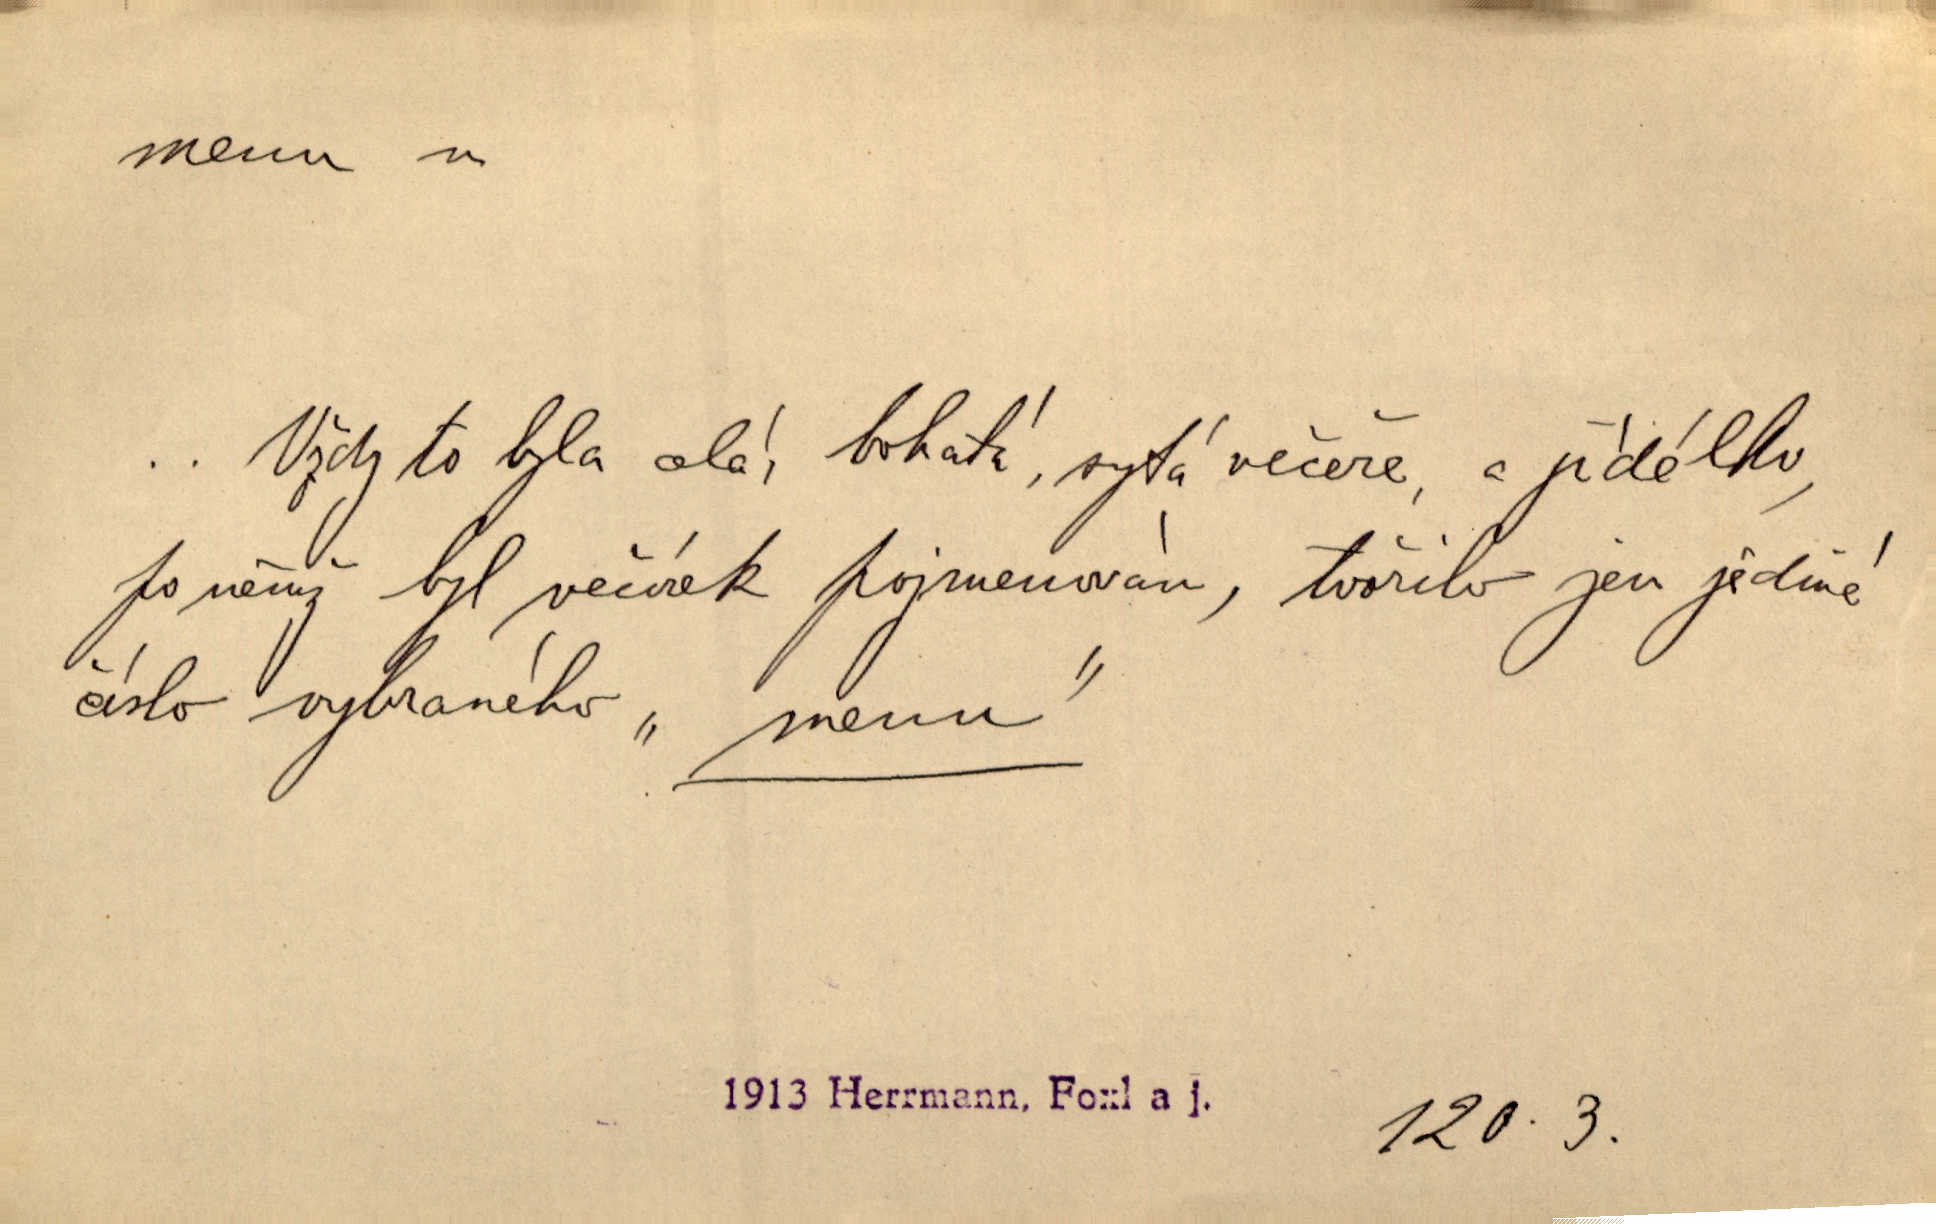 menu n
.. Vždy to byla celá, bohatá, sytá večeře, a jídélko,
po němž byl večírek pojmenován, tvořilo jen jediné
číslo vybraného „menu"
1913 Herrmann, Foxl a j.
120. 3.